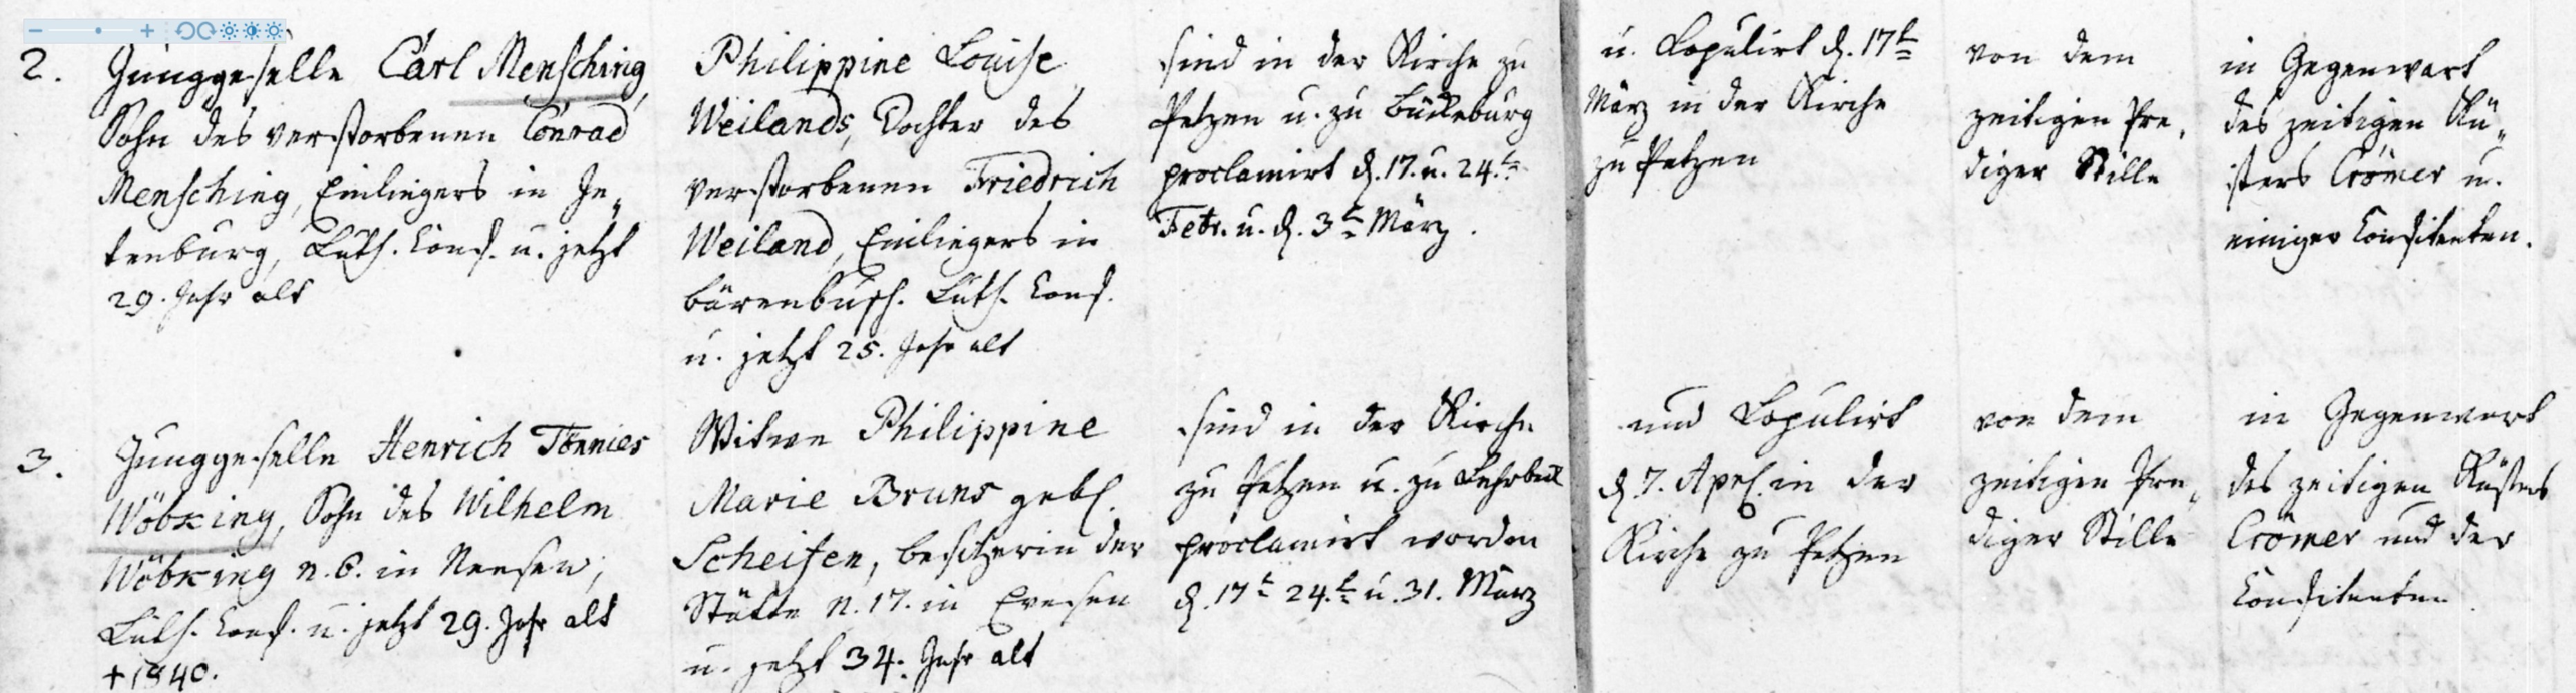 2.
Junggeselle Carl Mensching,
Sohn des verstorbenen Conrad
Mensching, Einliegers in Je„
tenburg, Luth. Conf. u. jetzt
29. Jahr alt
Philippine Louise
Weilands, Tochter des
verstorbenen Friedrich
Weiland, Einliegers in
Bärenbusch. Luth. Conf.
u. jetzt 25. Jahr alt
sind in der Kirche zu
Petzen u. zu Bückeburg
proclamirt d. 17. u. 24.t
Febr. u. d. 3t März.
u. Copulirt d. 17t
März in der Kirche
zu Petzen
von dem
zeitigen Pre„
diger Stille
in Gegenwart
des zeitigen Kü„
sters Crömer u.
einiger Confitenten.
3.
Junggeselle Henrich Tönnies
Wöbking, Sohn des Wilhelm
Wöbking n. 6. in Neesen,
Luth. Conf. u. jetzt 29. Jahr alt
+ 1840.
Witwe Philippine
Marie Bruns geb.
Scheifen, besitzerin der
Stätte n. 17. in Evesen
u. jetzt 34. Jahr alt
sind in der Kirche
zu Petzen u. zu
proclamirt worden
d. 17t 24.t u. 31. März
und Copulirt
d. 7. Apr. in der
Kirche zu Petzen
von dem
zeitigen Pre„
diger Stille
in Gegenwart
des zeitigen Küsters
Crömer und der
Confitenten